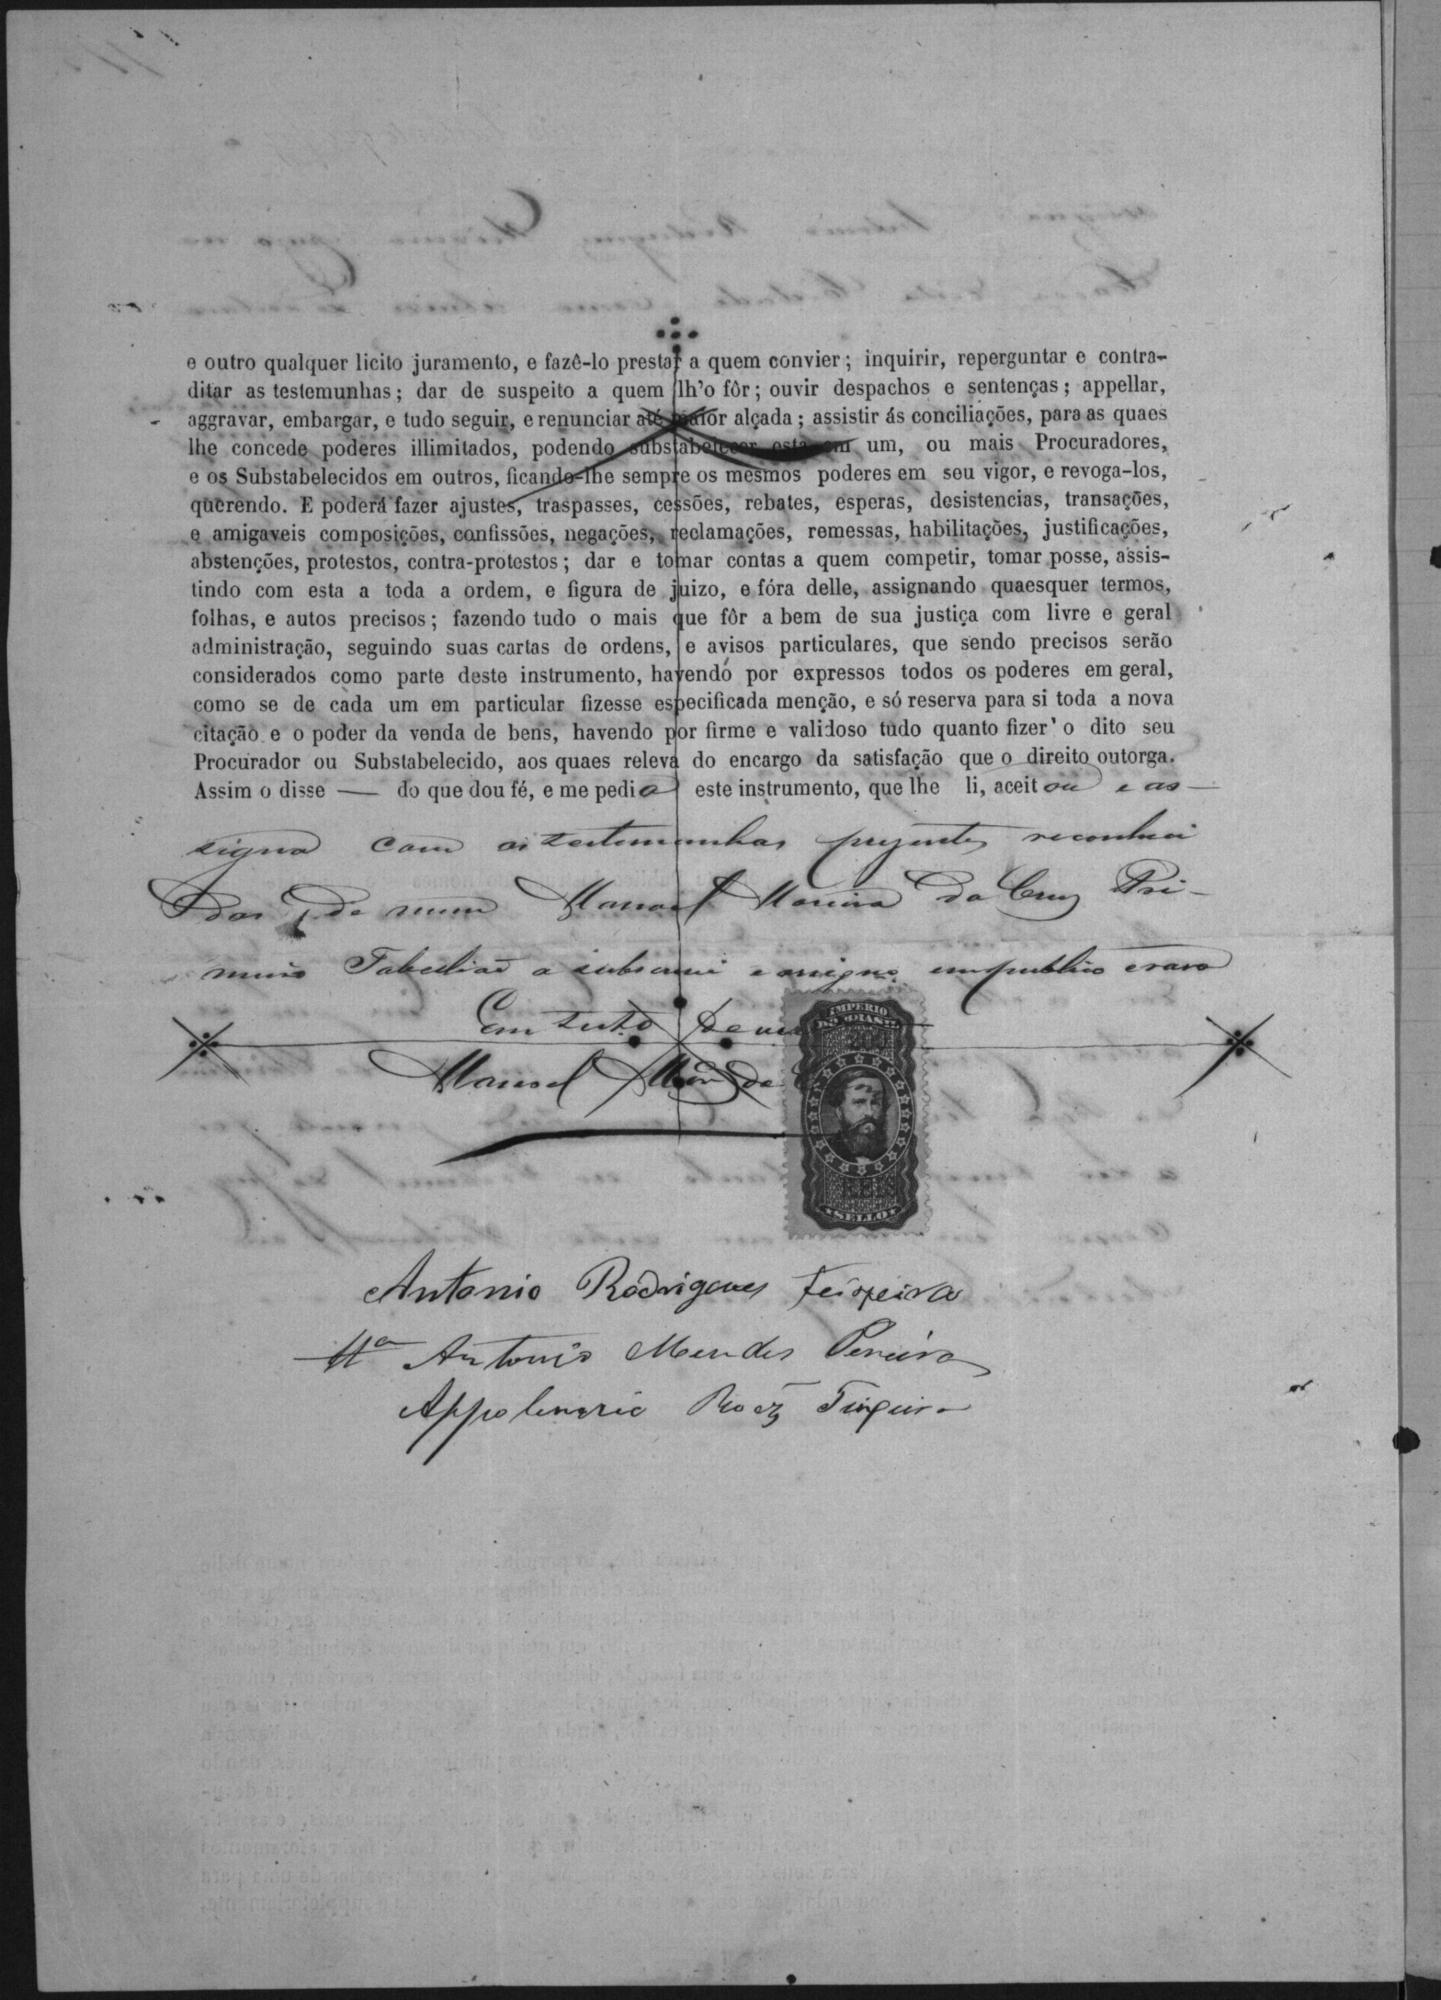 e outro qualquer licito juramento, e fazê-lo prestar a quem convier; inquirir, reperguntar e contra-
ditar as testemunhas; dar de suspeito a quem lh'o fôr; ouvir despachos e sentenças; appellar,
aggravar, embargar, e tudo seguir, e renunciar até maior alçada; assistir ás conciliações, para as quaes
lhe concede poderes illimitados, podendo substabelecer esta em um, ou mais Procuradores,
e os Substabelecidos em outros, ficando-lhe sempre os mesmos poderes em seu vigor, e revoga-los,
querendo. E poderá fazer ajustes, traspasses, cessões, rebates, esperas, desistencias, transações,
e amigaveis composições, confissões, negações, reclamações, remessas, habilitações, justificações,
abstenções, protestos, contra-protestos; dar e tomar contas a quem competir, tomar posse, assis-
tindo com esta a toda a ordem, e figura de juizo, e fóra delle, assignando quaesquer termos,
folhas, e autos precisos; fazendo tudo o mais que fôr a bem de sua justiça com livre e geral
administração, seguindo suas cartas de ordens, e avisos particulares, que sendo precisos serão
considerados como parte deste instrumento, havendo por expressos todos os poderes em geral,
como se de cada um em particular fizesse especificada menção, e só reserva para si toda a nova
citação e o poder da venda de bens, havendo por firme e validoso tudo quanto fizer o dito seu
Procurador ou Substabelecido, aos quaes releva do encargo da satisfação que o direito outorga.
Assim o disse — do que dou fé, e me pedio este instrumento, que lhe li, aceitou e as-
signa com as testemunhas presentes reconheci
das de mim Manoel Moreira da Cruz Pri-
meiro Tabelião a subscrevi e assigno em publico e raso
Em testo de ver
Manoel Mor da
IMPERIO
DO BRASIL
200
REIS
SELLO
Antonio Rodrigues Teixeira
Antonio Mendes Pereira
Appolinario Roiz Teixeira